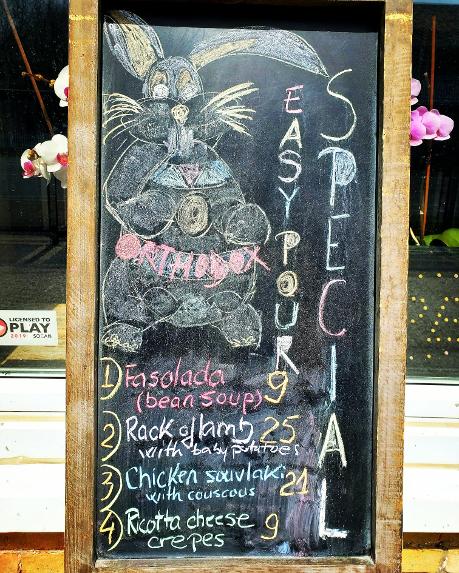 EASY POUR
SPECIAL
ORTHODOX
1) Fasolada 9
(bean soup)
2) Rack of lamb 25
with baby potatoes
3) Chicken souvlaki 21
with couscous
4) Ricotta cheese 9
crepes
LICENSED TO
PLAY
2019 SOCAN